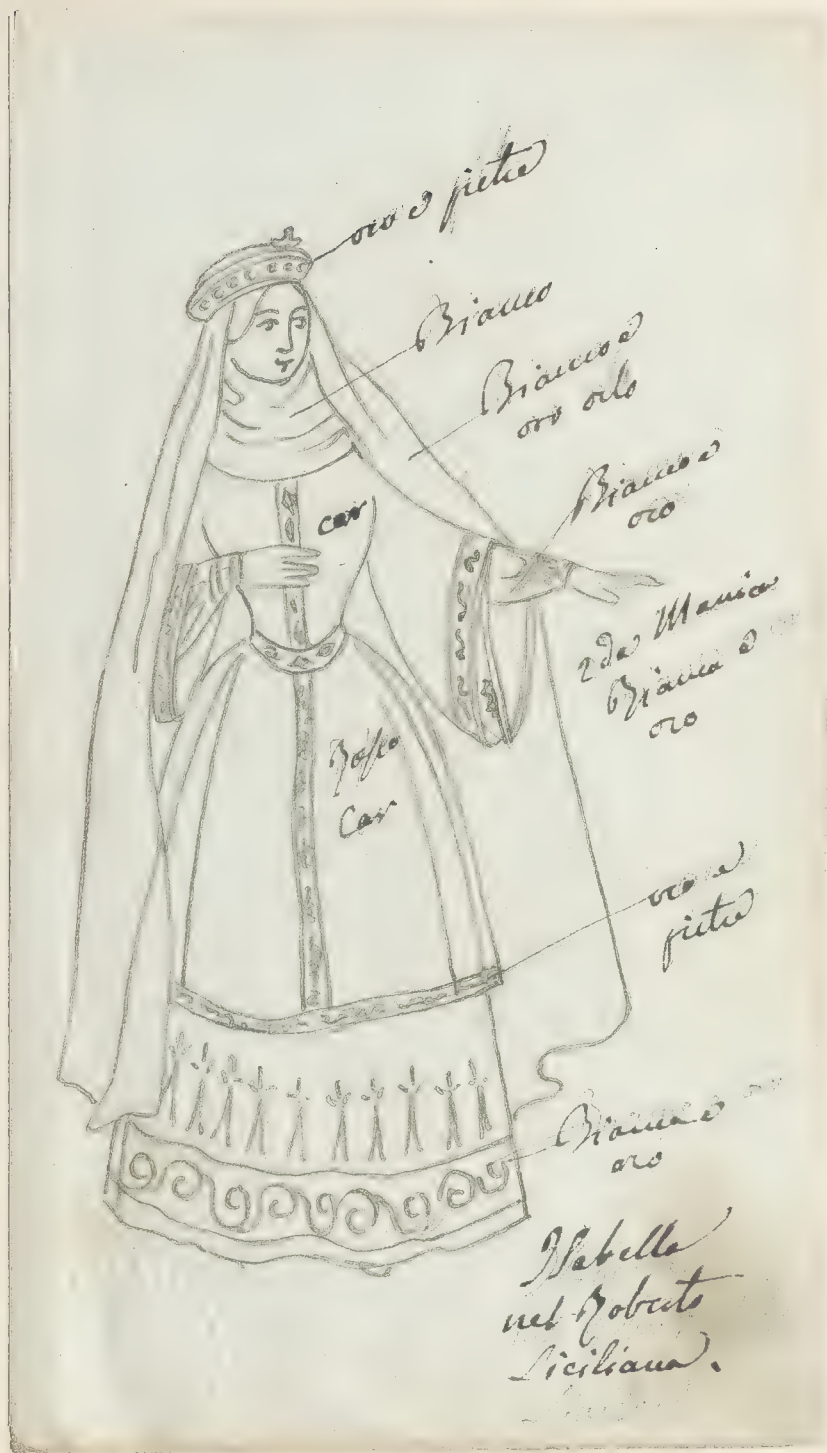 oro e pietre
Bianco
Bianco e
oro orlo
Bianco e
oro
car
2da Manica
Bianca e
oro
Rosso
Car
oro e
pietre
Bianco e
oro
Isabella
nel Roberto
Siciliana.